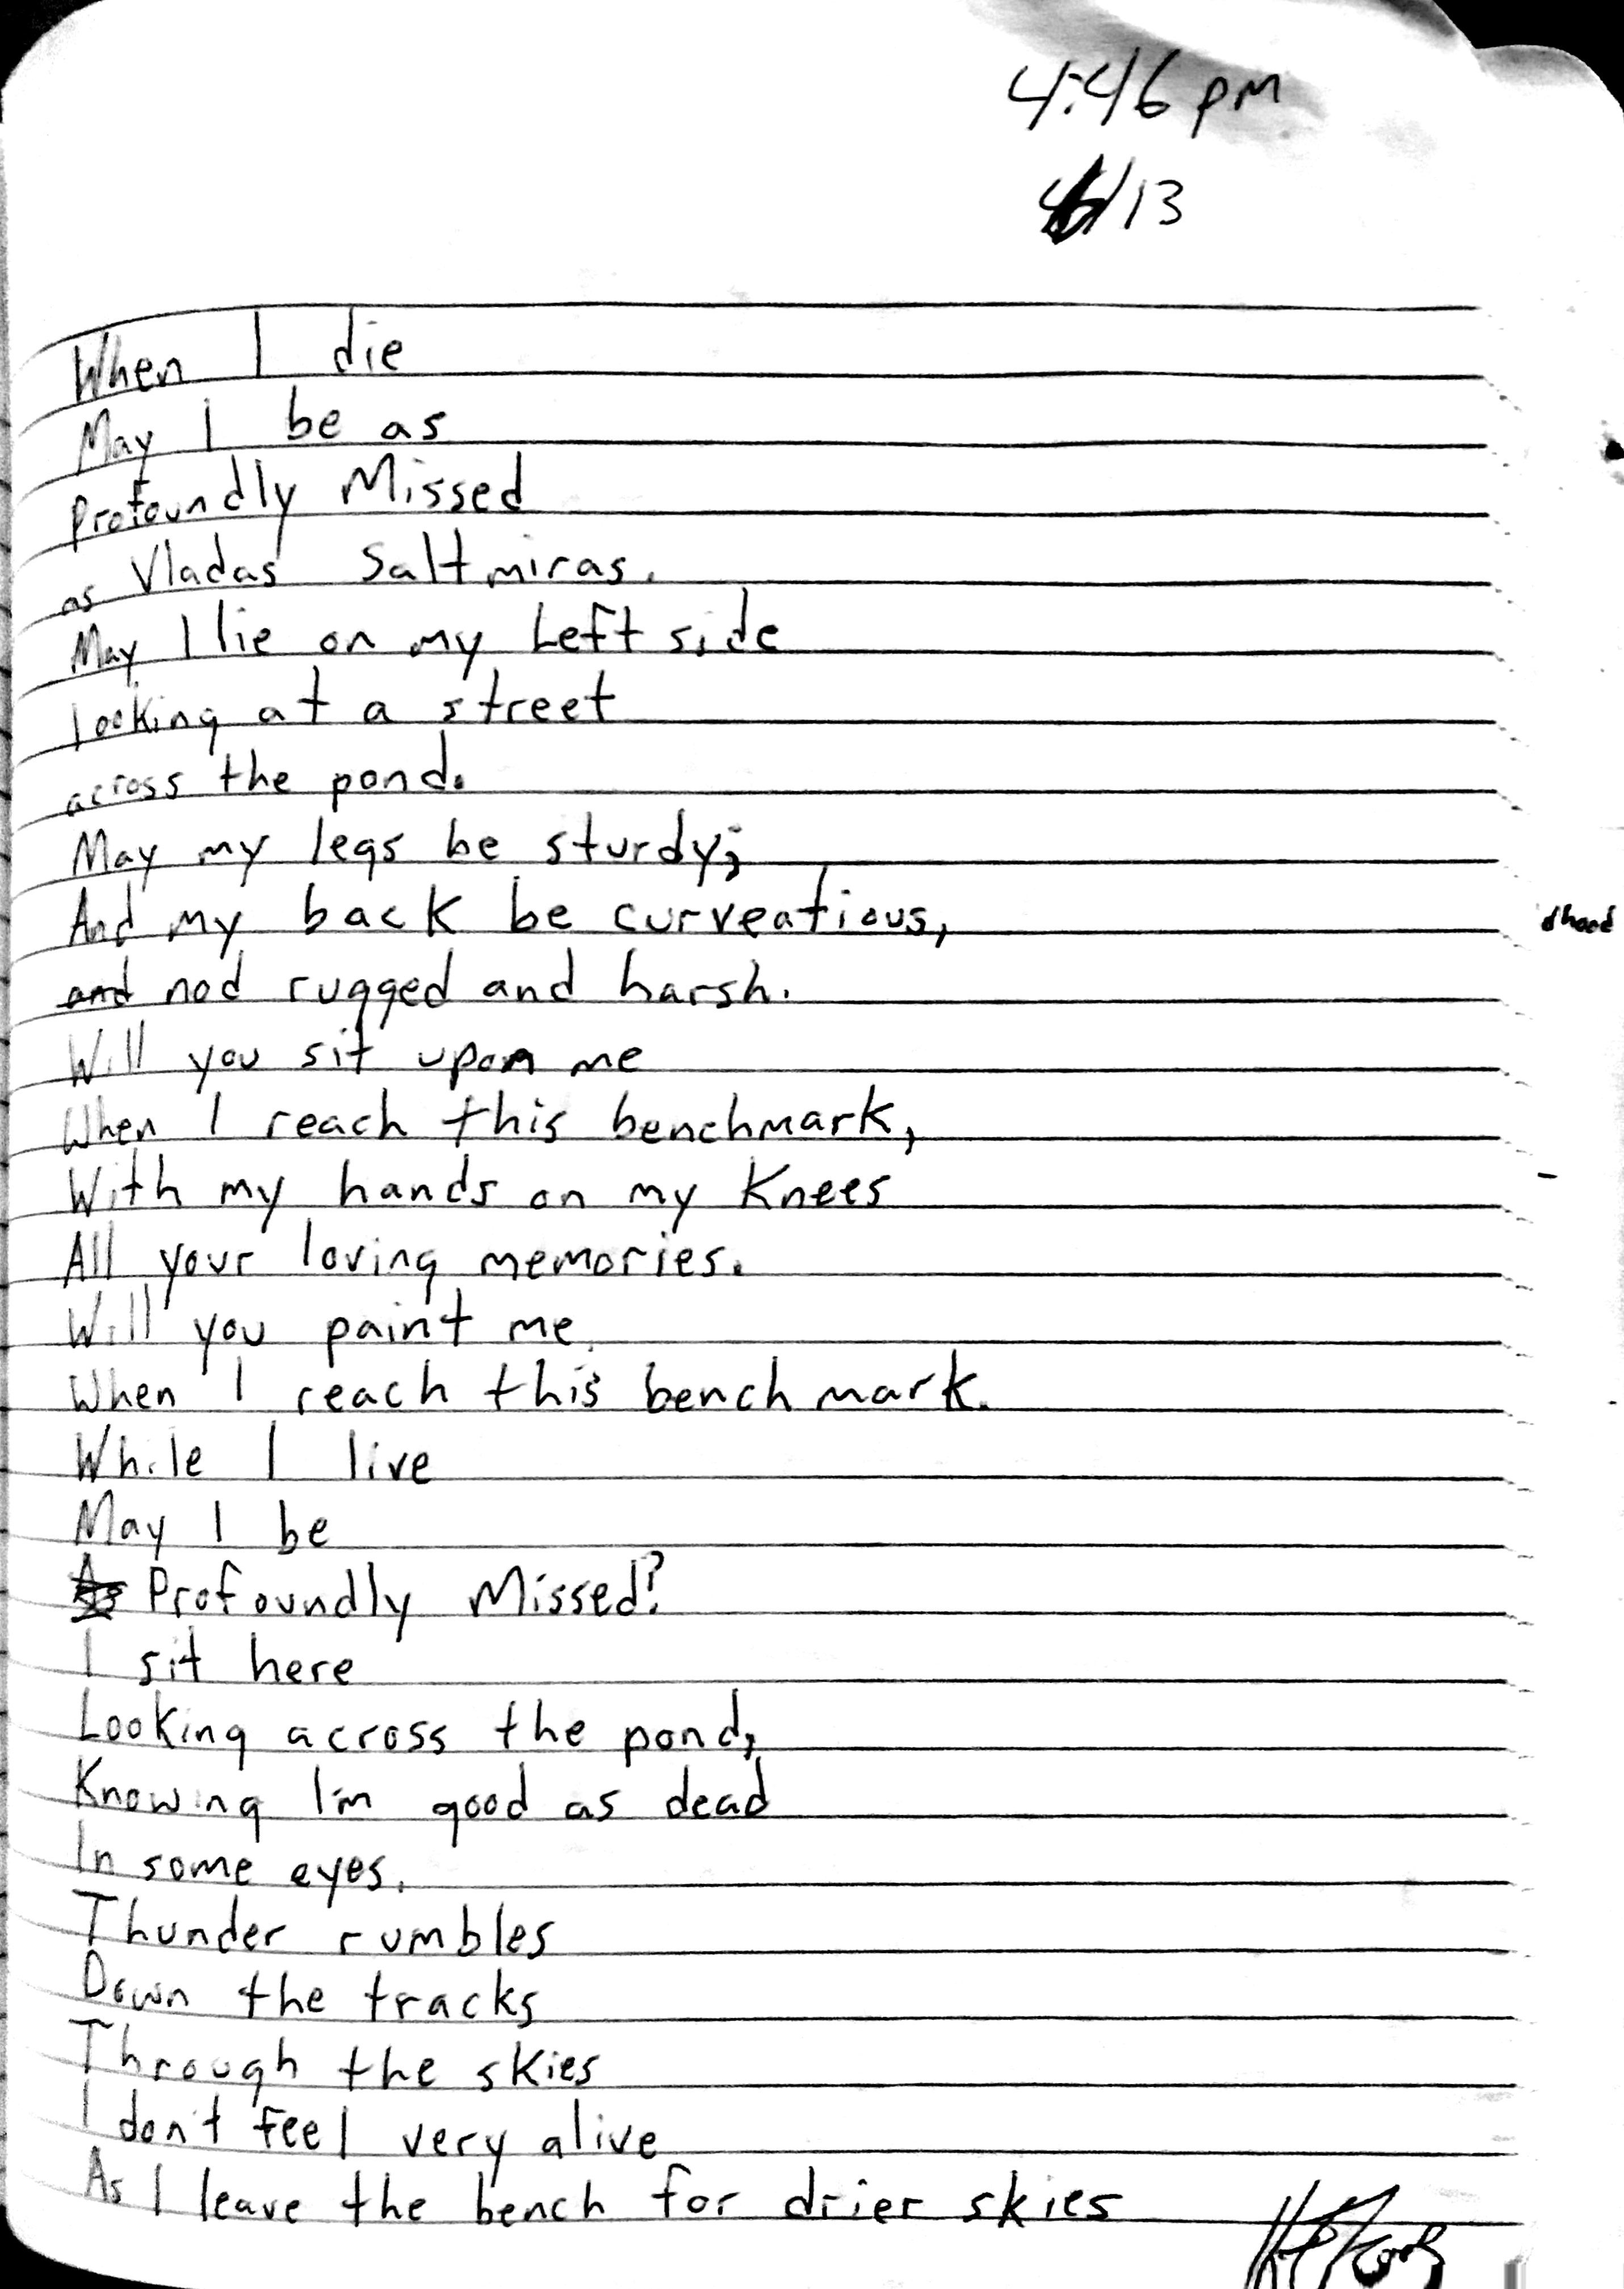 4:46 pm
/13
When I die
May I be as
Profoundly Missed
as Vladas Saltmiras.
May I lie on my Left side
looking at a street
across the pond.
May my legs be sturdy;
And my back be curveatious,
and nod rugged and harsh.
Will you sit upon me
When I reach this benchmark,
With my hands on my Knees
All your loving memories.
Will you paint me
When I reach this benchmark.
While I live
May I be
As Profoundly Missed?
I sit here
Looking across the pond,
Knowing I'm good as dead
In some eyes.
Thunder rumbles
Down the tracks
Through the skies
I don't feel very alive
As I leave the bench for drier skies